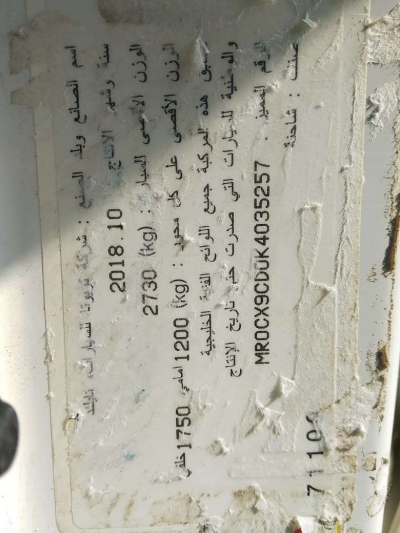 اسم الصانع وبلد الصنع : شركة تويوتا للسيارات تايلند
سنة وشهر الانتاج : 2018.10
الوزن الأقصى السيار : (kg) 2730
الوزن الأقصى على كل محور : (kg) 1200 امامي 1750 خلفي
هذه المركبة جميع اللوائح الفنية الخليجية
والوطنية للسيارات التي صدرت حتى تاريخ الإنتاج
الرقم المميز : MR0CX9CD0K4035257
صنفت : شاحنة